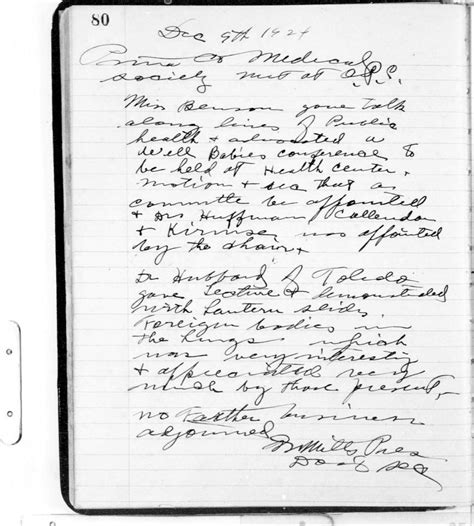 80
Dec 9th 1924
Co Medical
society met at O.P.S.
Miss Benson gave talk
along lines of Public
health & advocated a
Well Babies conference to
be held at Health center.
motion & sec that a
committe be appointed
& Drs Huffman Callendar
& was appointed
by the chair.
Dr Hubbard of Toledo
gave Lecture & demonstrated
with Lantern slides.
Foreign bodies in
the lungs which
was very interesting
& appreciated very
much by those present.
no Farther business
adjourned
Dr Mills Pres
Sec